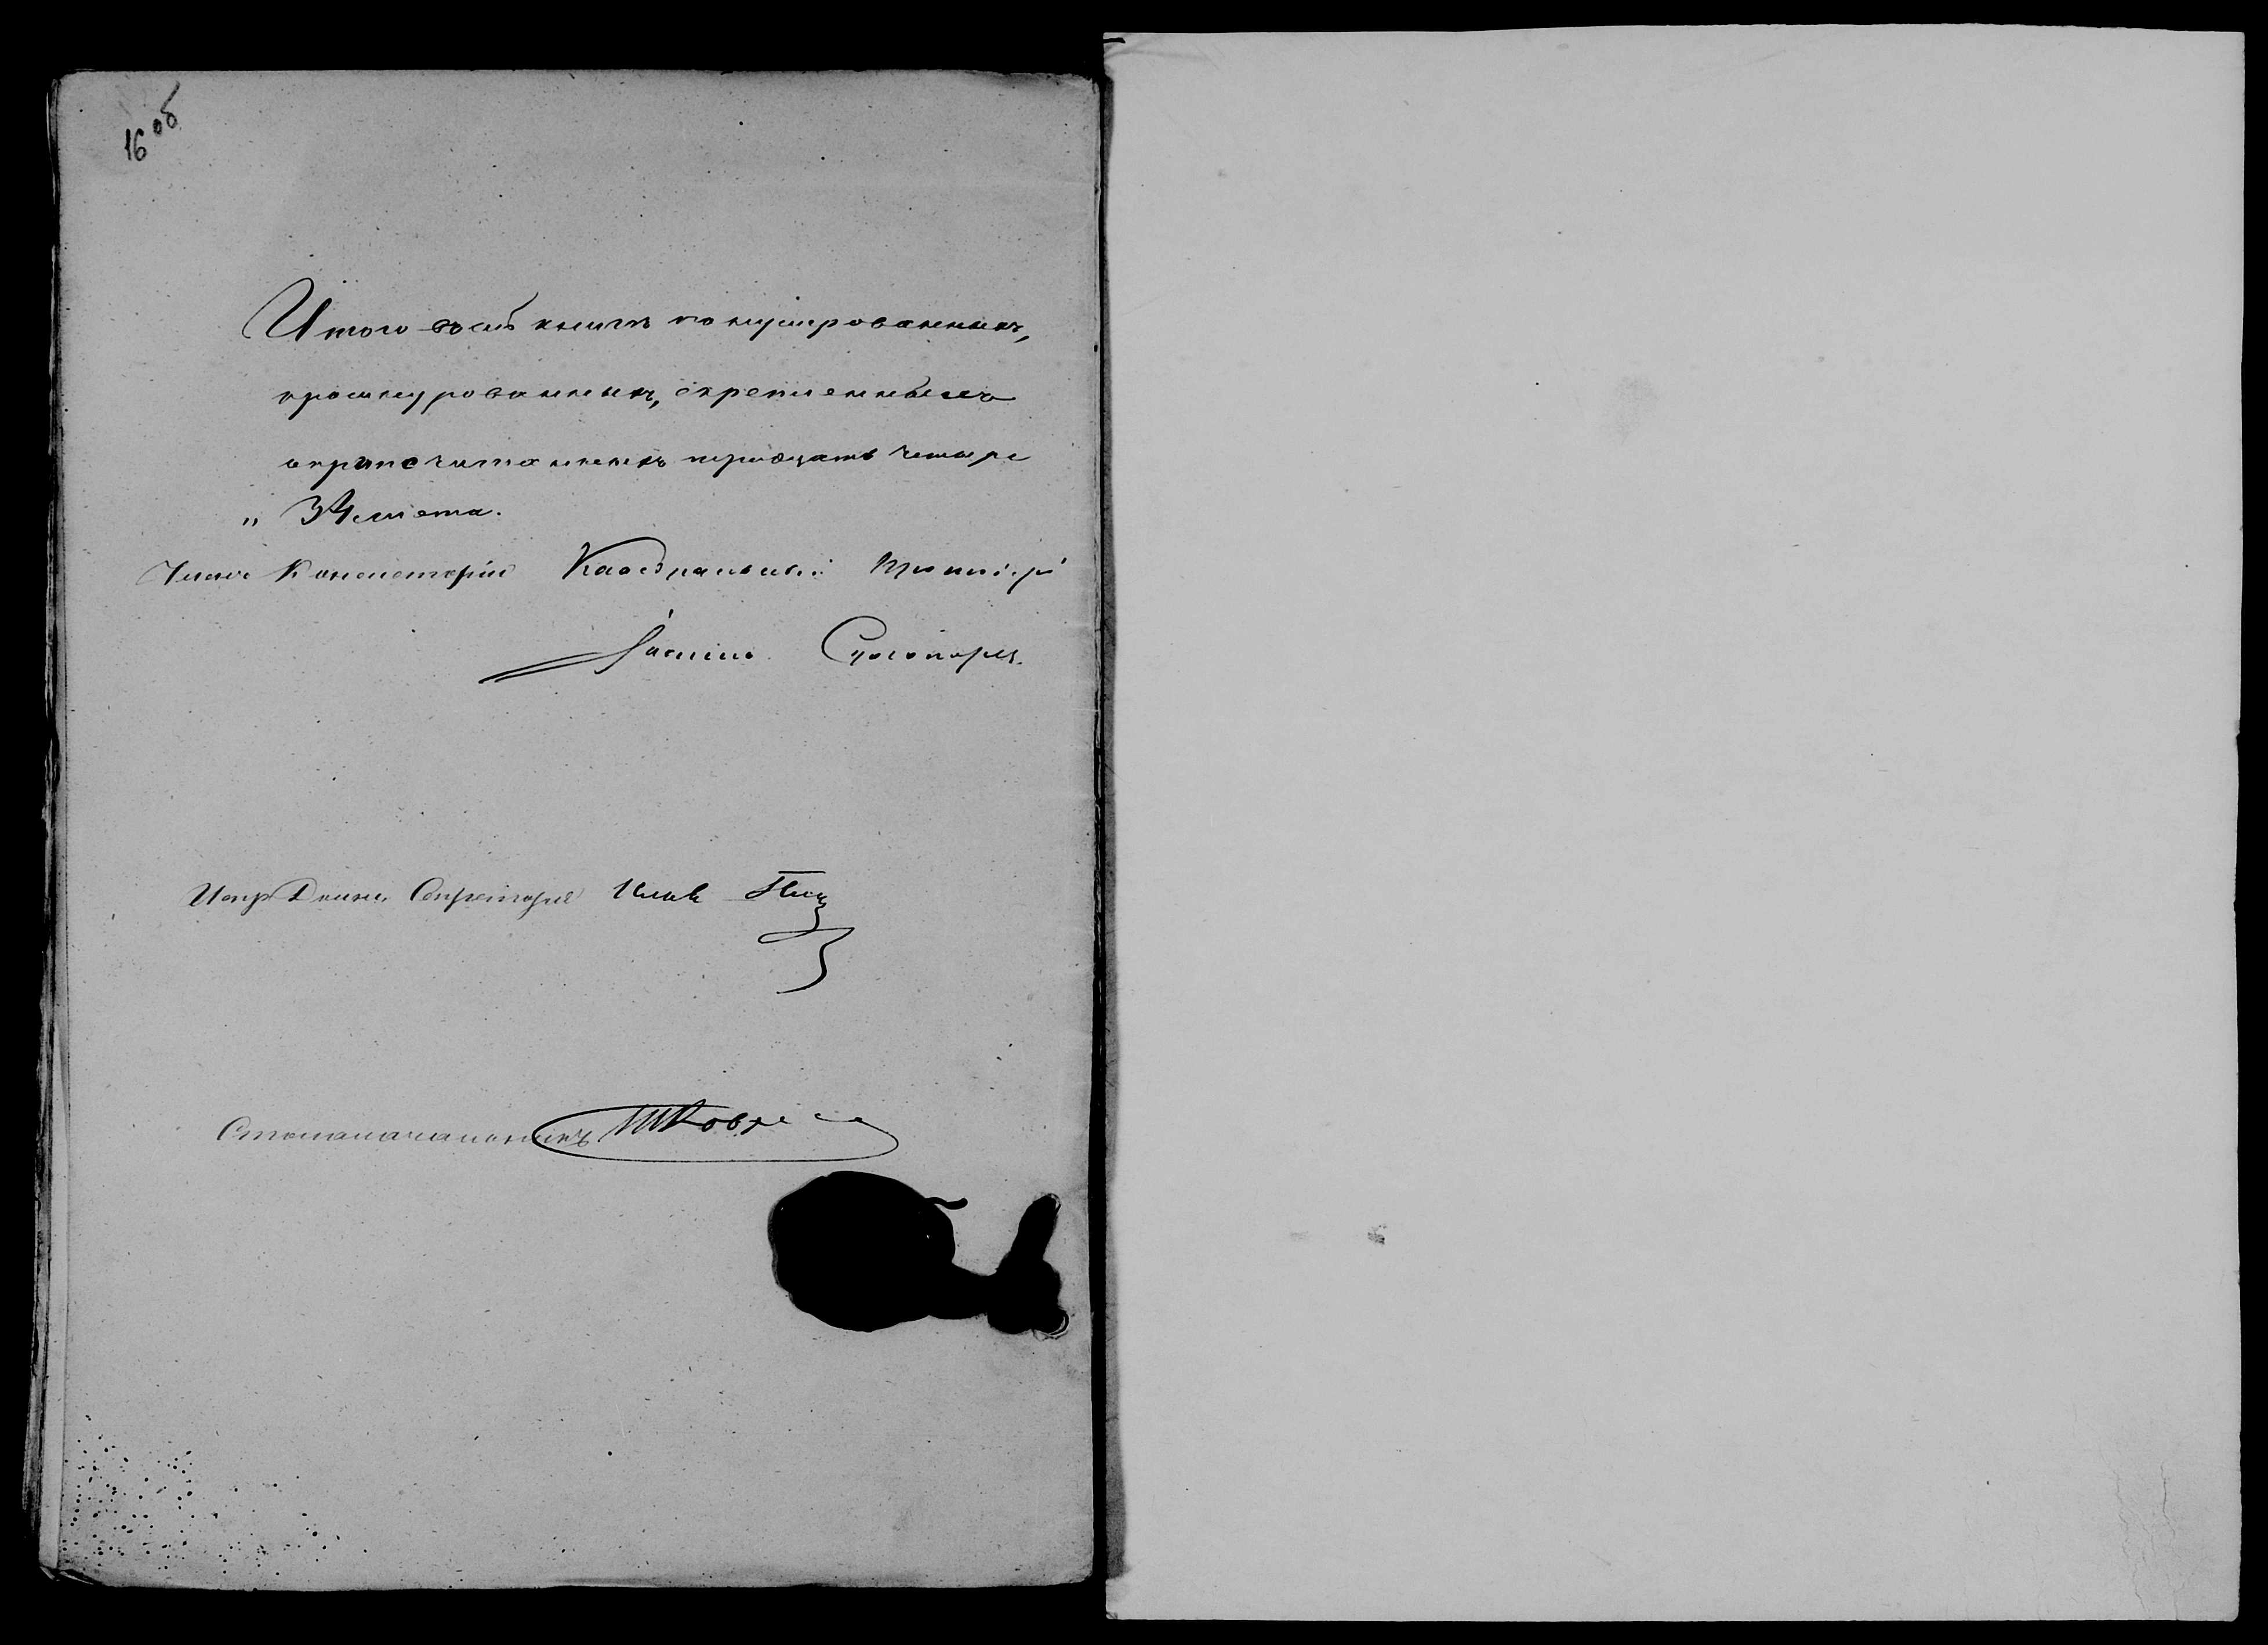 16 об
Итого въ сей книгѣ понумерованныхъ,
прошнурованныхъ, скрепленныхъ
и припечатанныхъ тридцать четыре
„ 34 листа.
Членъ Консисторіи Каѳедральный Протоіерей
Іоаннъ
Испр. Долж. Секретаря
Столоначальникъ